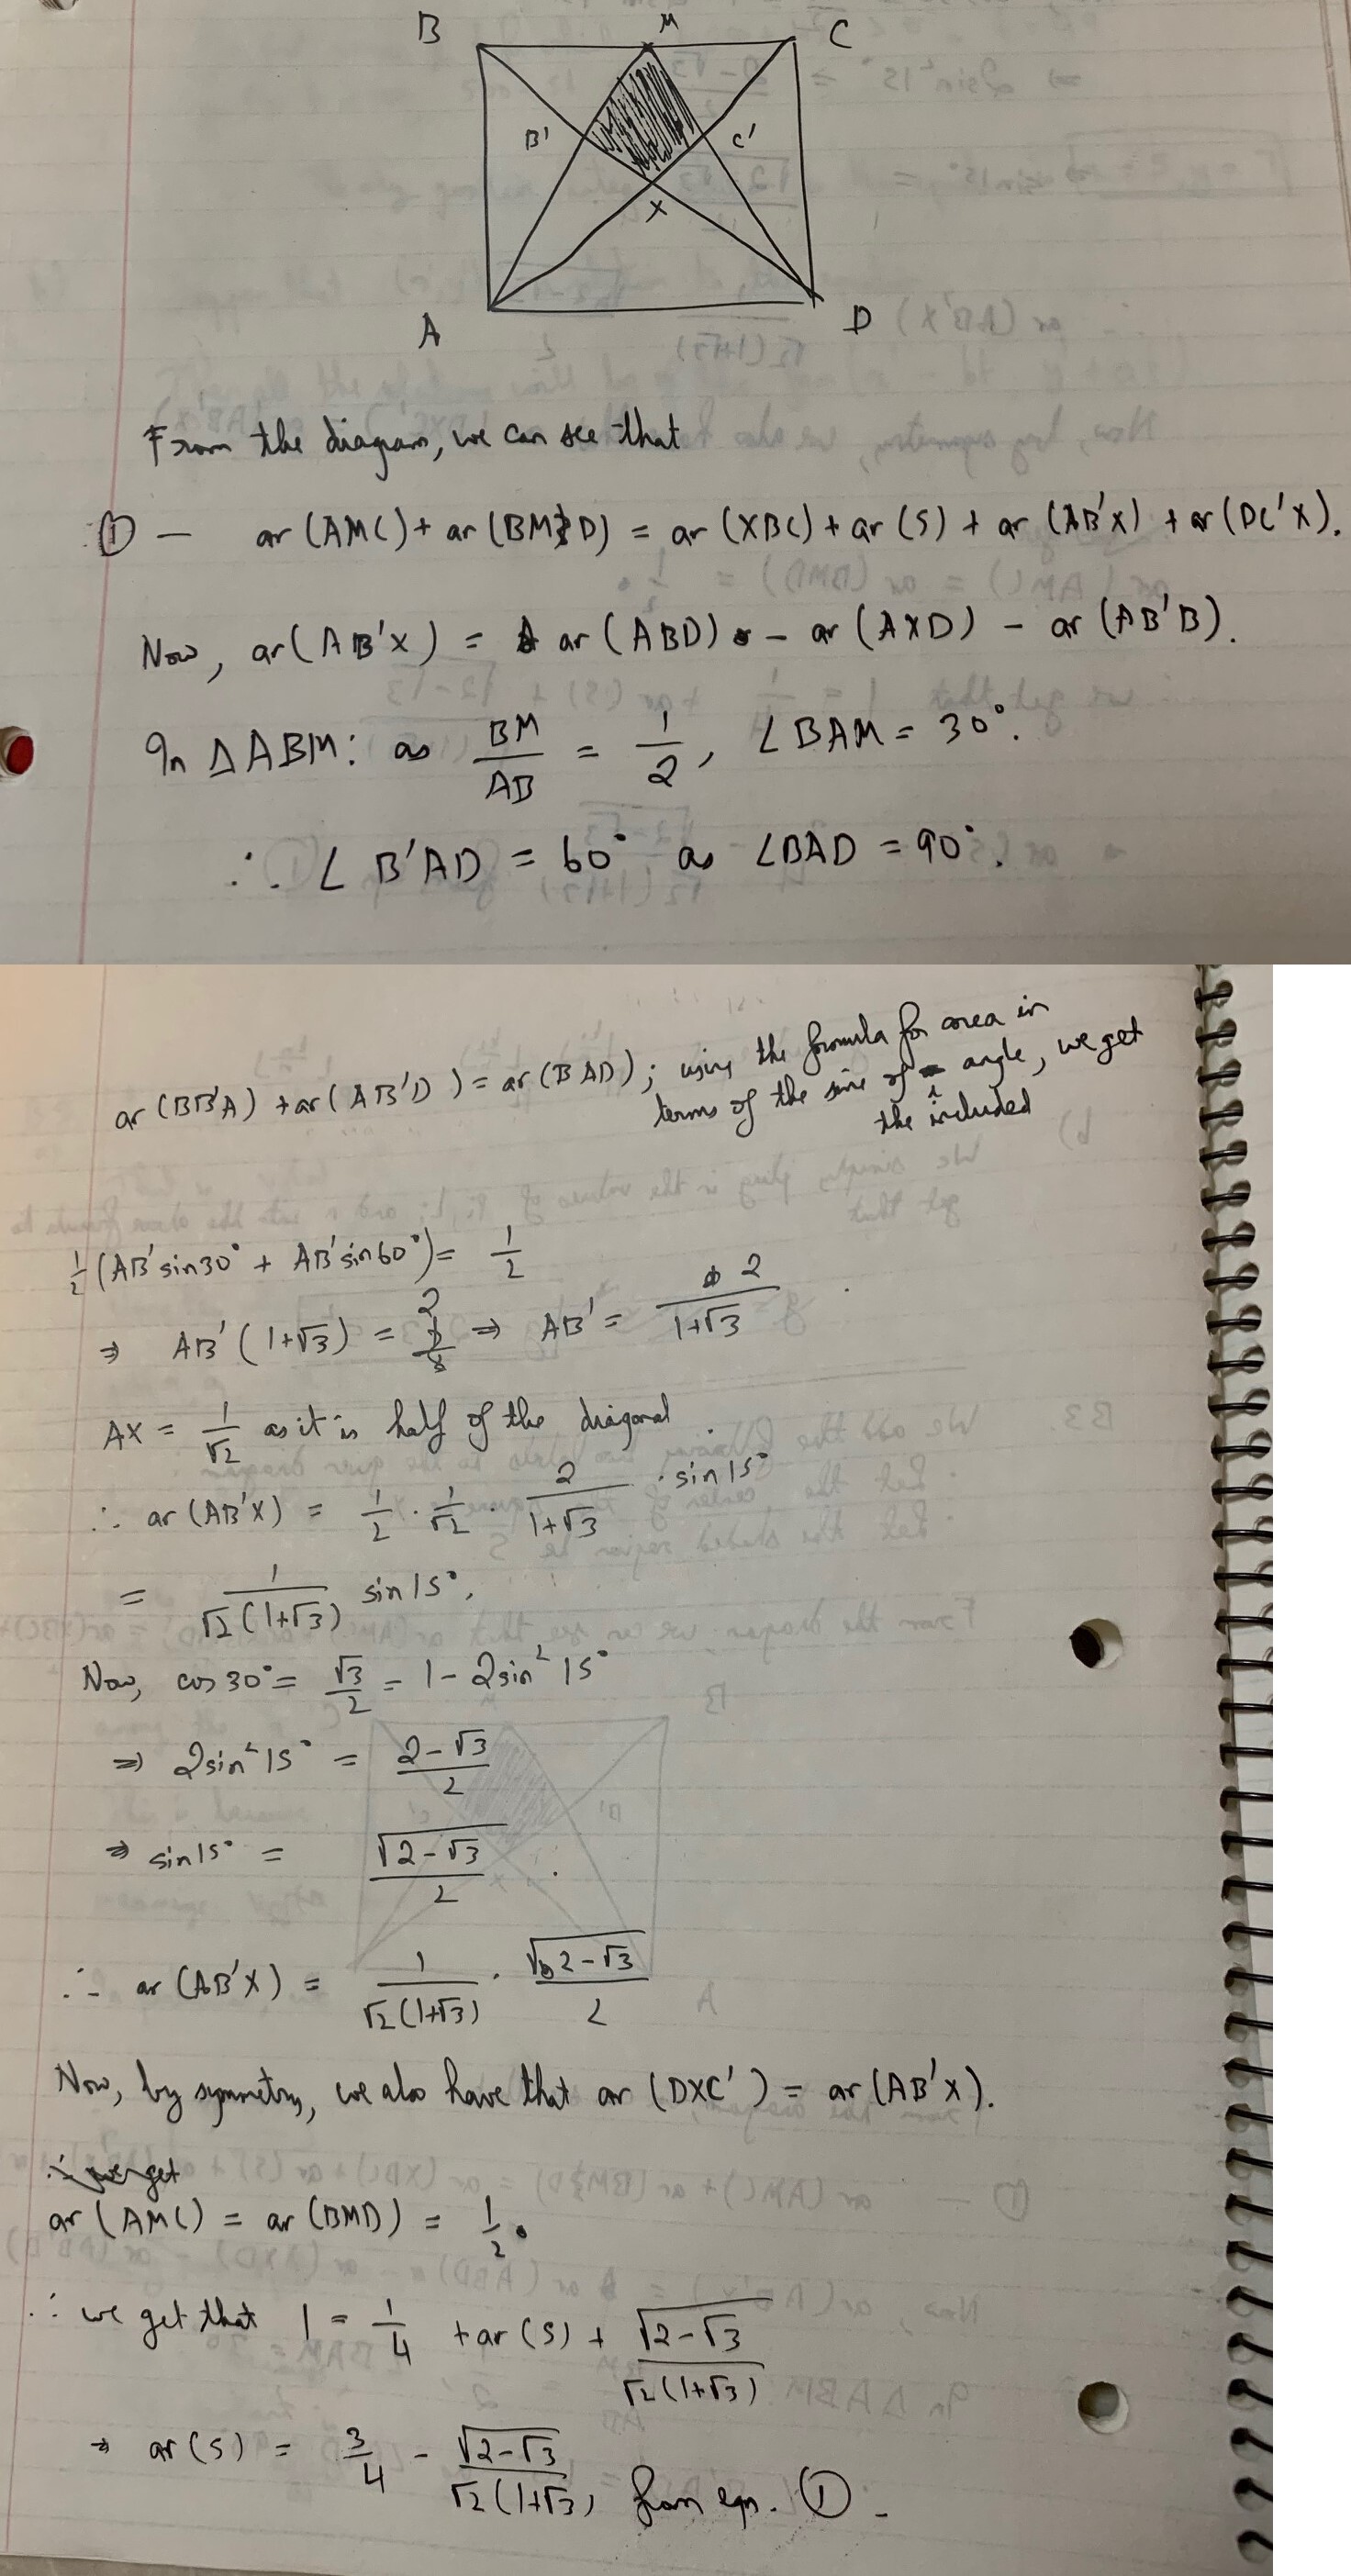 B M C
B' C'
X
A D
From the diagram, we can see that
① — ar (AMC) + ar (BMD) = ar (XBC) + ar (S) + ar (AB'X) + ar (DC'X).
Now, ar(AB'X) = ar (ABD) - ar (AXD) - ar (AB'B).
In △ABM: as BM/AB = 1/2, ∠BAM = 30°.
∴ ∠B'AD = 60° as ∠BAD = 90°.
ar (BB'A) + ar (AB'D) = ar (BAD); using the formula for area in
terms of the sine of angle, we get
the included
1/2 (AB' sin30° + AB' sin60°) = 1/2
⇒ AB' (1+√3) = 2 ⇒ AB' = 2/(1+√3)
AX = 1/√2 as it is half of the diagonal
∴ ar (AB'X) = 1/2 · 1/√2 · 2/(1+√3) · sin15°
= 1/(√2(1+√3)) sin15°.
Now, cos30° = √3/2 = 1 - 2sin²15°
⇒ 2sin²15° = (2-√3)/2
⇒ sin15° = √(2-√3)/2.
∴ ar (AB'X) = 1/(√2(1+√3)) · √(2-√3)/2
Now, by symmetry, we also have that ar (DXC') = ar (AB'X).
ar (AMC) = ar (BMD) = 1/2.
∴ we get that 1 = 1/4 + ar (S) + √(2-√3)/(√2(1+√3))
⇒ ar (S) = 3/4 - √(2-√3)/(√2(1+√3)) from eqn. ①.